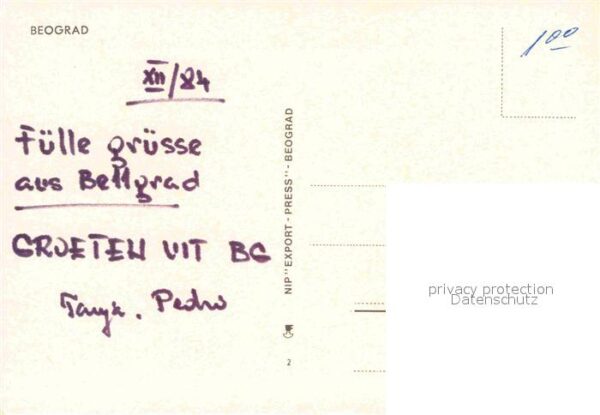 BEOGRAD
XII/84
Fülle grüsse
aus Bellgrad
GROETEN UIT BG
Tanya. Pedro
NIP "EXPORT - PRESS" - BEOGRAD
2
1.00
privacy protection
Datenschutz